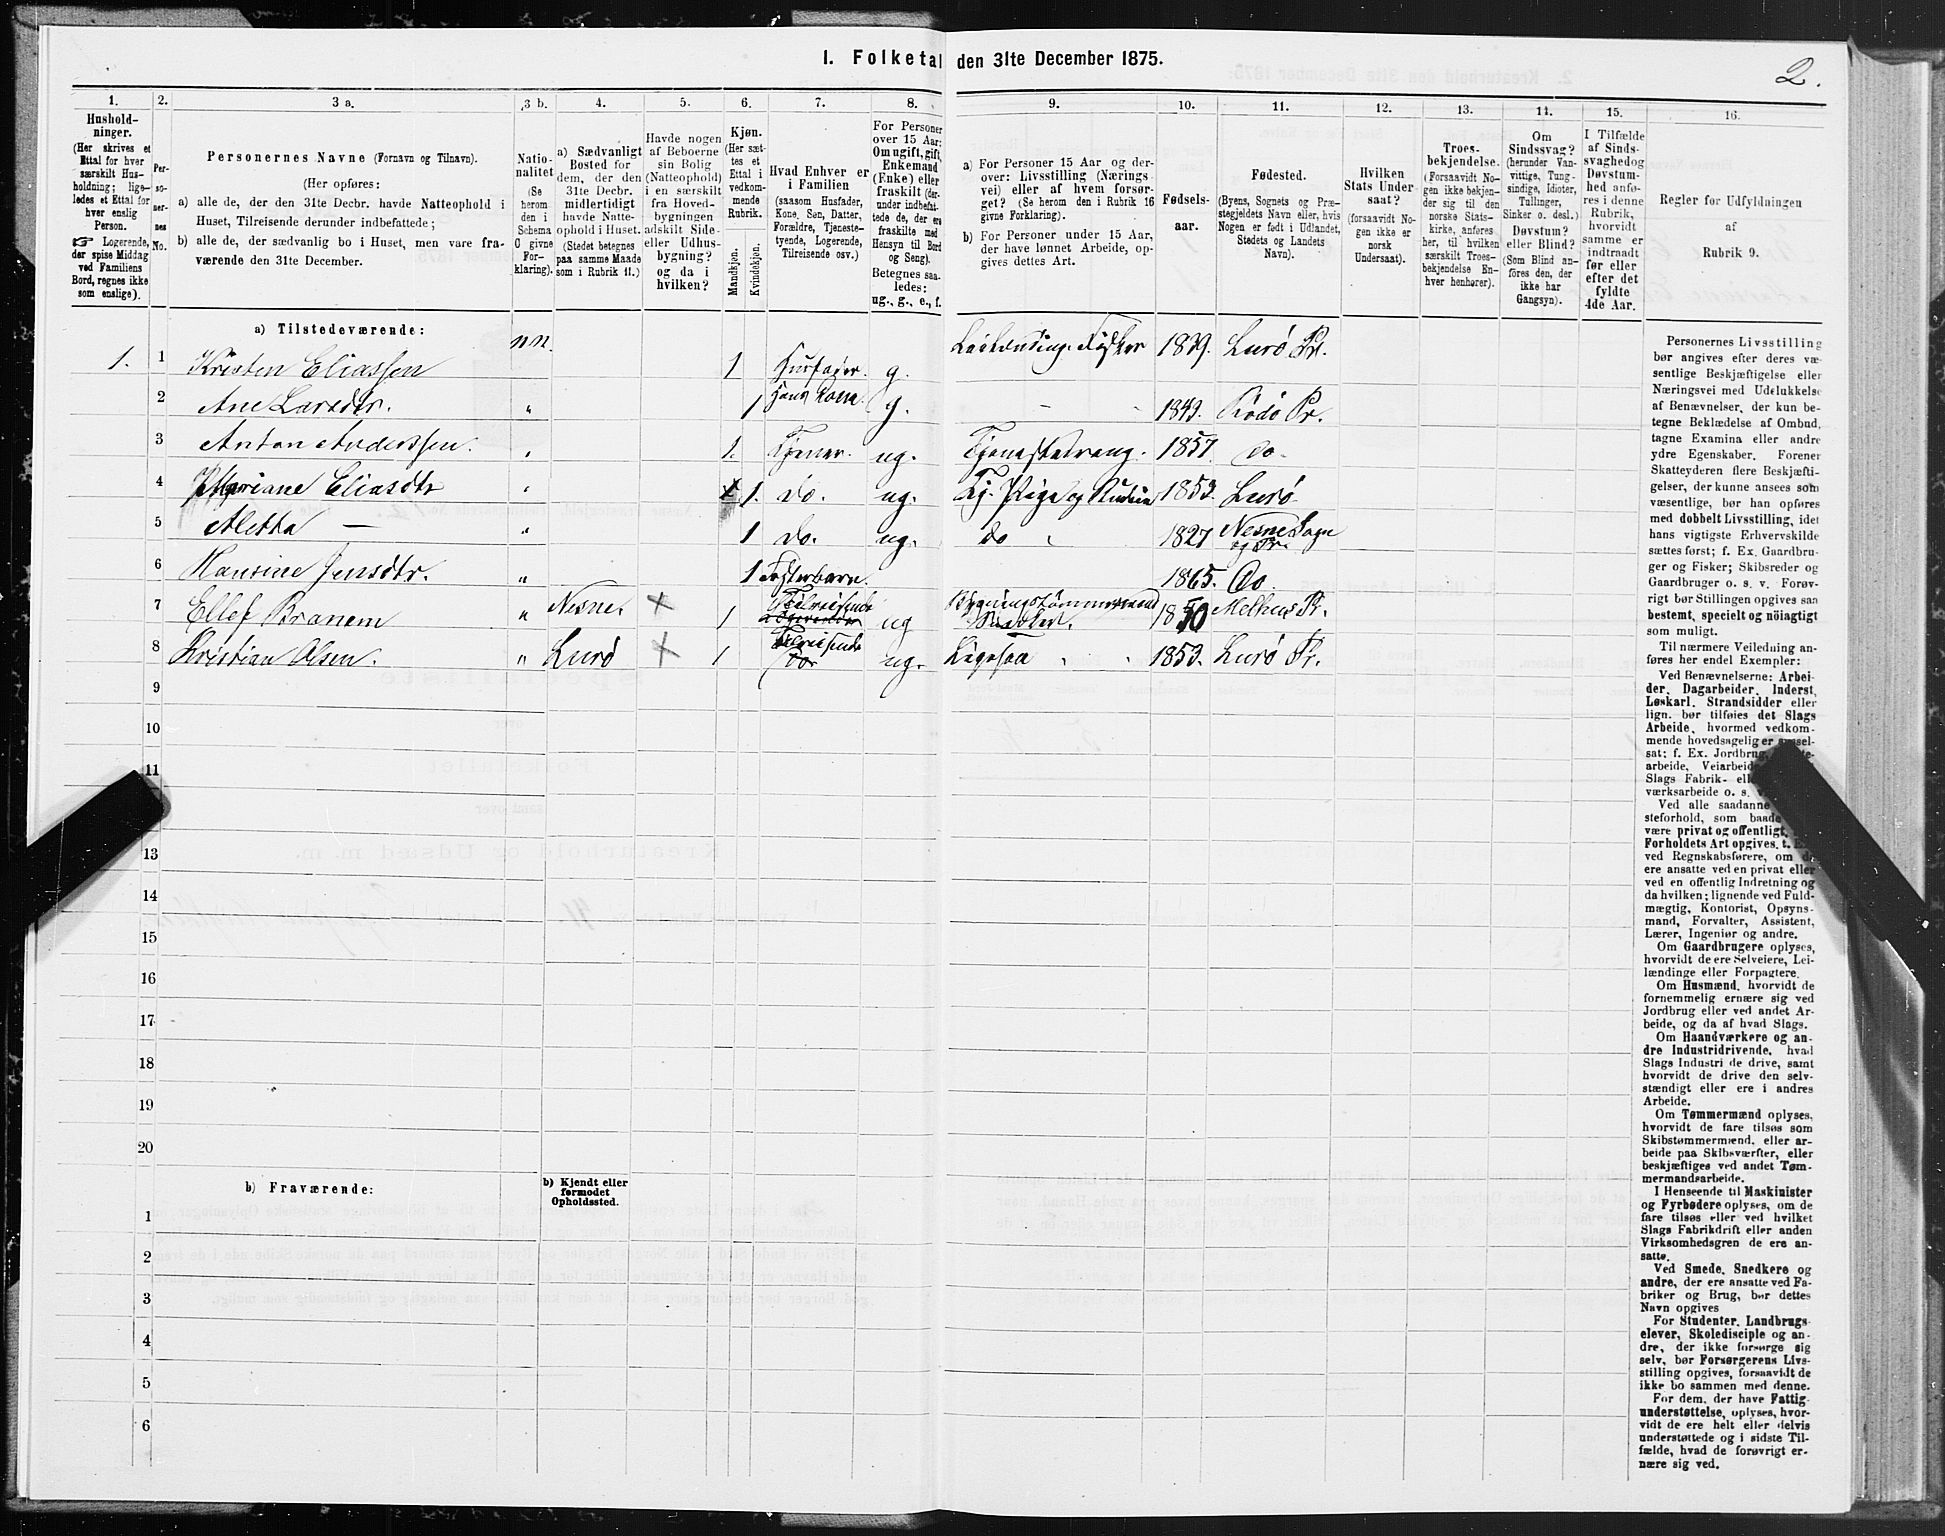 I. Folketal den 31te December 1875.
2.
1.
Hushold-
ninger.
(Her skrives et
Ettal for hver
særskilt Hus-
holdning; lige-
ledes et Ettal for
hver enslig
Person.
☞ Logerende,
der spise Middag
ved Familiens
Bord, regnes ikke
som enslige).
2.
Per-
so-
ner-
nes
No.
3 a.
Personernes Navne (Fornavn og Tilnavn).
(Her opføres:
a) alle de, der den 31te Decbr. havde Natteophold i
Huset, Tilreisende derunder indbefattede;
b) alle de, der sædvanlig bo i Huset, men vare fra-
værende den 31te December.
3 b.
Natio-
nalitet
(Se
herom
den i
Schema
O givne
For-
klaring).
4.
a) Sædvanligt
Bosted for
dem, der den
31te Decbr.
midlertidigt
havde Natte-
ophold i Huset.
(Stedet betegnes
paa samme Maade
som i Rubrik 11.)
5.
Havde nogen
af Beboerne
sin Bolig
(Natteophold)
i en særskilt
fra Hoved-
bygningen
adskilt Side-
eller Udhus-
bygning?
og da i
hvilken?
6.
Kjøn.
(Her sæt-
tes et
Ettal i
vedkom-
mende
Rubrik.
Mandkjøn.
Kvindekjøn.
7.
Hvad Enhver er
i Familien
(saasom Husfader,
Kone, Søn, Datter,
Forældre, Tjeneste-
tyende, Logerende,
Tilreisende osv.)
8.
For Personer
over 15 Aar:
Om ugift, gift,
Enkemand
(Enke) eller
fraskilt (der-
under indbefat-
tede de, der ere
fraskilte med
Hensyn til Bord
og Seng).
Betegnes saa-
ledes:
ug., g., e., f.
9.
a) For Personer 15 Aar og der-
over: Livsstilling (Nærings-
vei) eller af hvem forsør-
get? (Se herom den i Rubrik 16
givne Forklaring).
b) For Personer under 15 Aar,
der have lønnet Arbeide, op-
gives dettes Art.
10.
Fødsels-
aar.
11.
Fødested.
(Byens, Sognets og Præ-
stegjeldets Navn eller, hvis
Nogen er født i Udlandet,
Stedets og Landets
Navn).
12.
Hvilken
Stats Under-
saat?
(forsaavidt No-
gen ikke er
norsk
Undersaat).
13.
Troes-
bekjendelse.
(Forsaavidt No-
gen ikke bekjen-
der sig til den
norske Stats-
kirke, anføres
her, til hvilken
særskilt Troes-
bekjendelse En-
hver henhører).
14.
Om
Sindssvag?
(herunder Van-
vittige, Tung-
sindige, Idioter,
Tullinger,
Sinker o. desl.)
Døvstum?
eller Blind?
(Som Blind an-
føres den, der
ikke har
Gangsyn).
15.
I Tilfælde
af Sinds-
svaghedog
Døvstum-
hed anfø-
res i denne
Rubrik,
hvorvidt
samme er
indtraadt
før eller
efter det
fyldte
4de Aar.
16.
Regler for Udfyldningen
af
Rubrik 9.
a) Tilstedeværende:
1. 1 Kristen Eliassen nn. 1 Husfader g. Leilending. Fisker 1839. Lurö Pr.
2 Ane Larsdtr. " 1 Hans Kone. g. - - 1849. Rödö Pr.
3 Anton Anderssen. " 1. Tjener. ug. Tjenestedreng. 1857. Do.
4 Mariane Eliasdtr " 1. Do. ug. Tj. Pige og 1853. Lurö
5 Aletta — " 1 Do. ug. Do " 1827 Nesne Sogn og Pr.
6 Hansine Jensdtr. " 1 Fosterbarn. 1865. Do.
7 Ellef Branem " Nesne. x 1 Tilreisende ug Bygningstømmermand 1850 Melhus Pr.
8 Kristian Olsen. " Lurö x 1 Tilreisende ug. Ligesaa " " 1853. Lurö Pr.
9
10
11
13
14
15
16
17
18
19
20
b) Fraværende:
b) Kjendt eller
formodet
Opholdssted.
1
2
3
4
5
6
Personernes Livsstilling
bør angives efter deres væ-
sentlige Beskjæftigelse eller
Næringsvei med Udelukkelse
af Benævnelser, der kun be-
tegne Beklædelse af Ombud,
tagne Examina eller andre
ydre Egenskaber. Forener
Skatteyderen flere Beskjæfti-
gelser, der kunne ansees som
væsentlige, bør han opføres
med dobbelt Livsstilling, idet
hans vigtigste Erhvervskilde
sættes først; f. Ex. Gaardbru-
ger og Fisker; Skibsreder og
Gaardbruger o. s. v. Forøv-
rigt bør Stillingen opgives saa
bestemt, specielt og nøiagtigt
som muligt.
Til nærmere Veiledning an-
føres her endel Exempler:
Ved Benævnelserne: Arbei-
der, Dagarbeider, Inderst,
Løskarl, Strandsidder eller
lign. bør tilføies det Slags
Arbeide, hvormed vedkom-
mende hovedsagelig er syssel-
sat; f. Ex. Jordbrug,
arbeide, Veiarbeide
Slags Fabrik-
værksarbeide o. s. v.
Ved alle saadanne
steforhold, som baade
være privat og offentligt,
Forholdets Art opgives, t. Ex.
ved Regnskabsførere, om de
ere ansatte ved en privat eller
ved en offentlig Indretning og
da hvilken; lignende ved Fuld-
mægtig, Kontorist, Opsyns-
mand, Forvalter, Assistent,
Lærer, Ingeniør og andre.
Om Gaardbrugere oplyses,
hvorvidt de ere Selveiere, Lei-
lændinge eller Forpagtere.
Om Husmænd, hvorvidt de
fornemmelig ernære sig ved
Jordbrug eller ved andet Ar-
beide, og da af hvad Slags.
Om Haandværkere og an-
dre Industridrivende, hvad
Slags Industri de drive, samt
hvorvidt de drive den selv-
stændigt eller ere i andres
Arbeide.
Om Tømmermænd oplyses,
hvorvidt de fare tilsøs som
Skibstømmermænd, eller ar-
beide paa Skibsværfter, eller
beskjæftiges ved andet Tøm-
mermandsarbeide.
I Henseende til Maskinister
og Fyrbødere oplyses, om de
fare tilsøs eller ved hvilket
Slags Fabrikdrift eller anden
Virksomhedsgren de ere an-
satte.
Ved Smede, Snedkere og
andre, der ere ansatte ved Fa-
briker og Brug, bør dettes
Navn opgives
For Studenter, Landbrugs-
elever, Skoledisciple og an-
dre, der ikke forsørge sig
selv, bør Forsørgerens Livs-
stilling opgives, forsaavidt de
ikke bo sammen med denne.
For dem, der have Fattig-
understøttelse, oplyses, hvor-
vidt de ere helt eller delvis
understøttede og i sidste Til-
fælde, hvad de forøvrigt er-
nære sig ved.